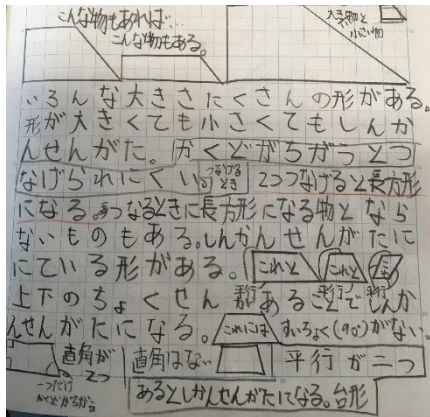 こんな物もあれば…
こんな物もある。
大きい物と
小さい物
いろんな大きさたくさんの形がある。
形が大きくても小さくてもしんか
んせんがた。かくどがちがうとつ
なげられにくい。つなげるとき 2つつなげると長方形
になる。つなるときに長方形になる物となら
ないものもある。しんかんせんがたに
にている形がある。これと これと
上下のちょくせん 平行 あることで しんか
んせんがたになる。これには すいちょく(90°)がない。
直角が 2つ 直角はない 平行が二つ
一つだけ
かくどがちがう
あるとしんかんせんがたになる。台形